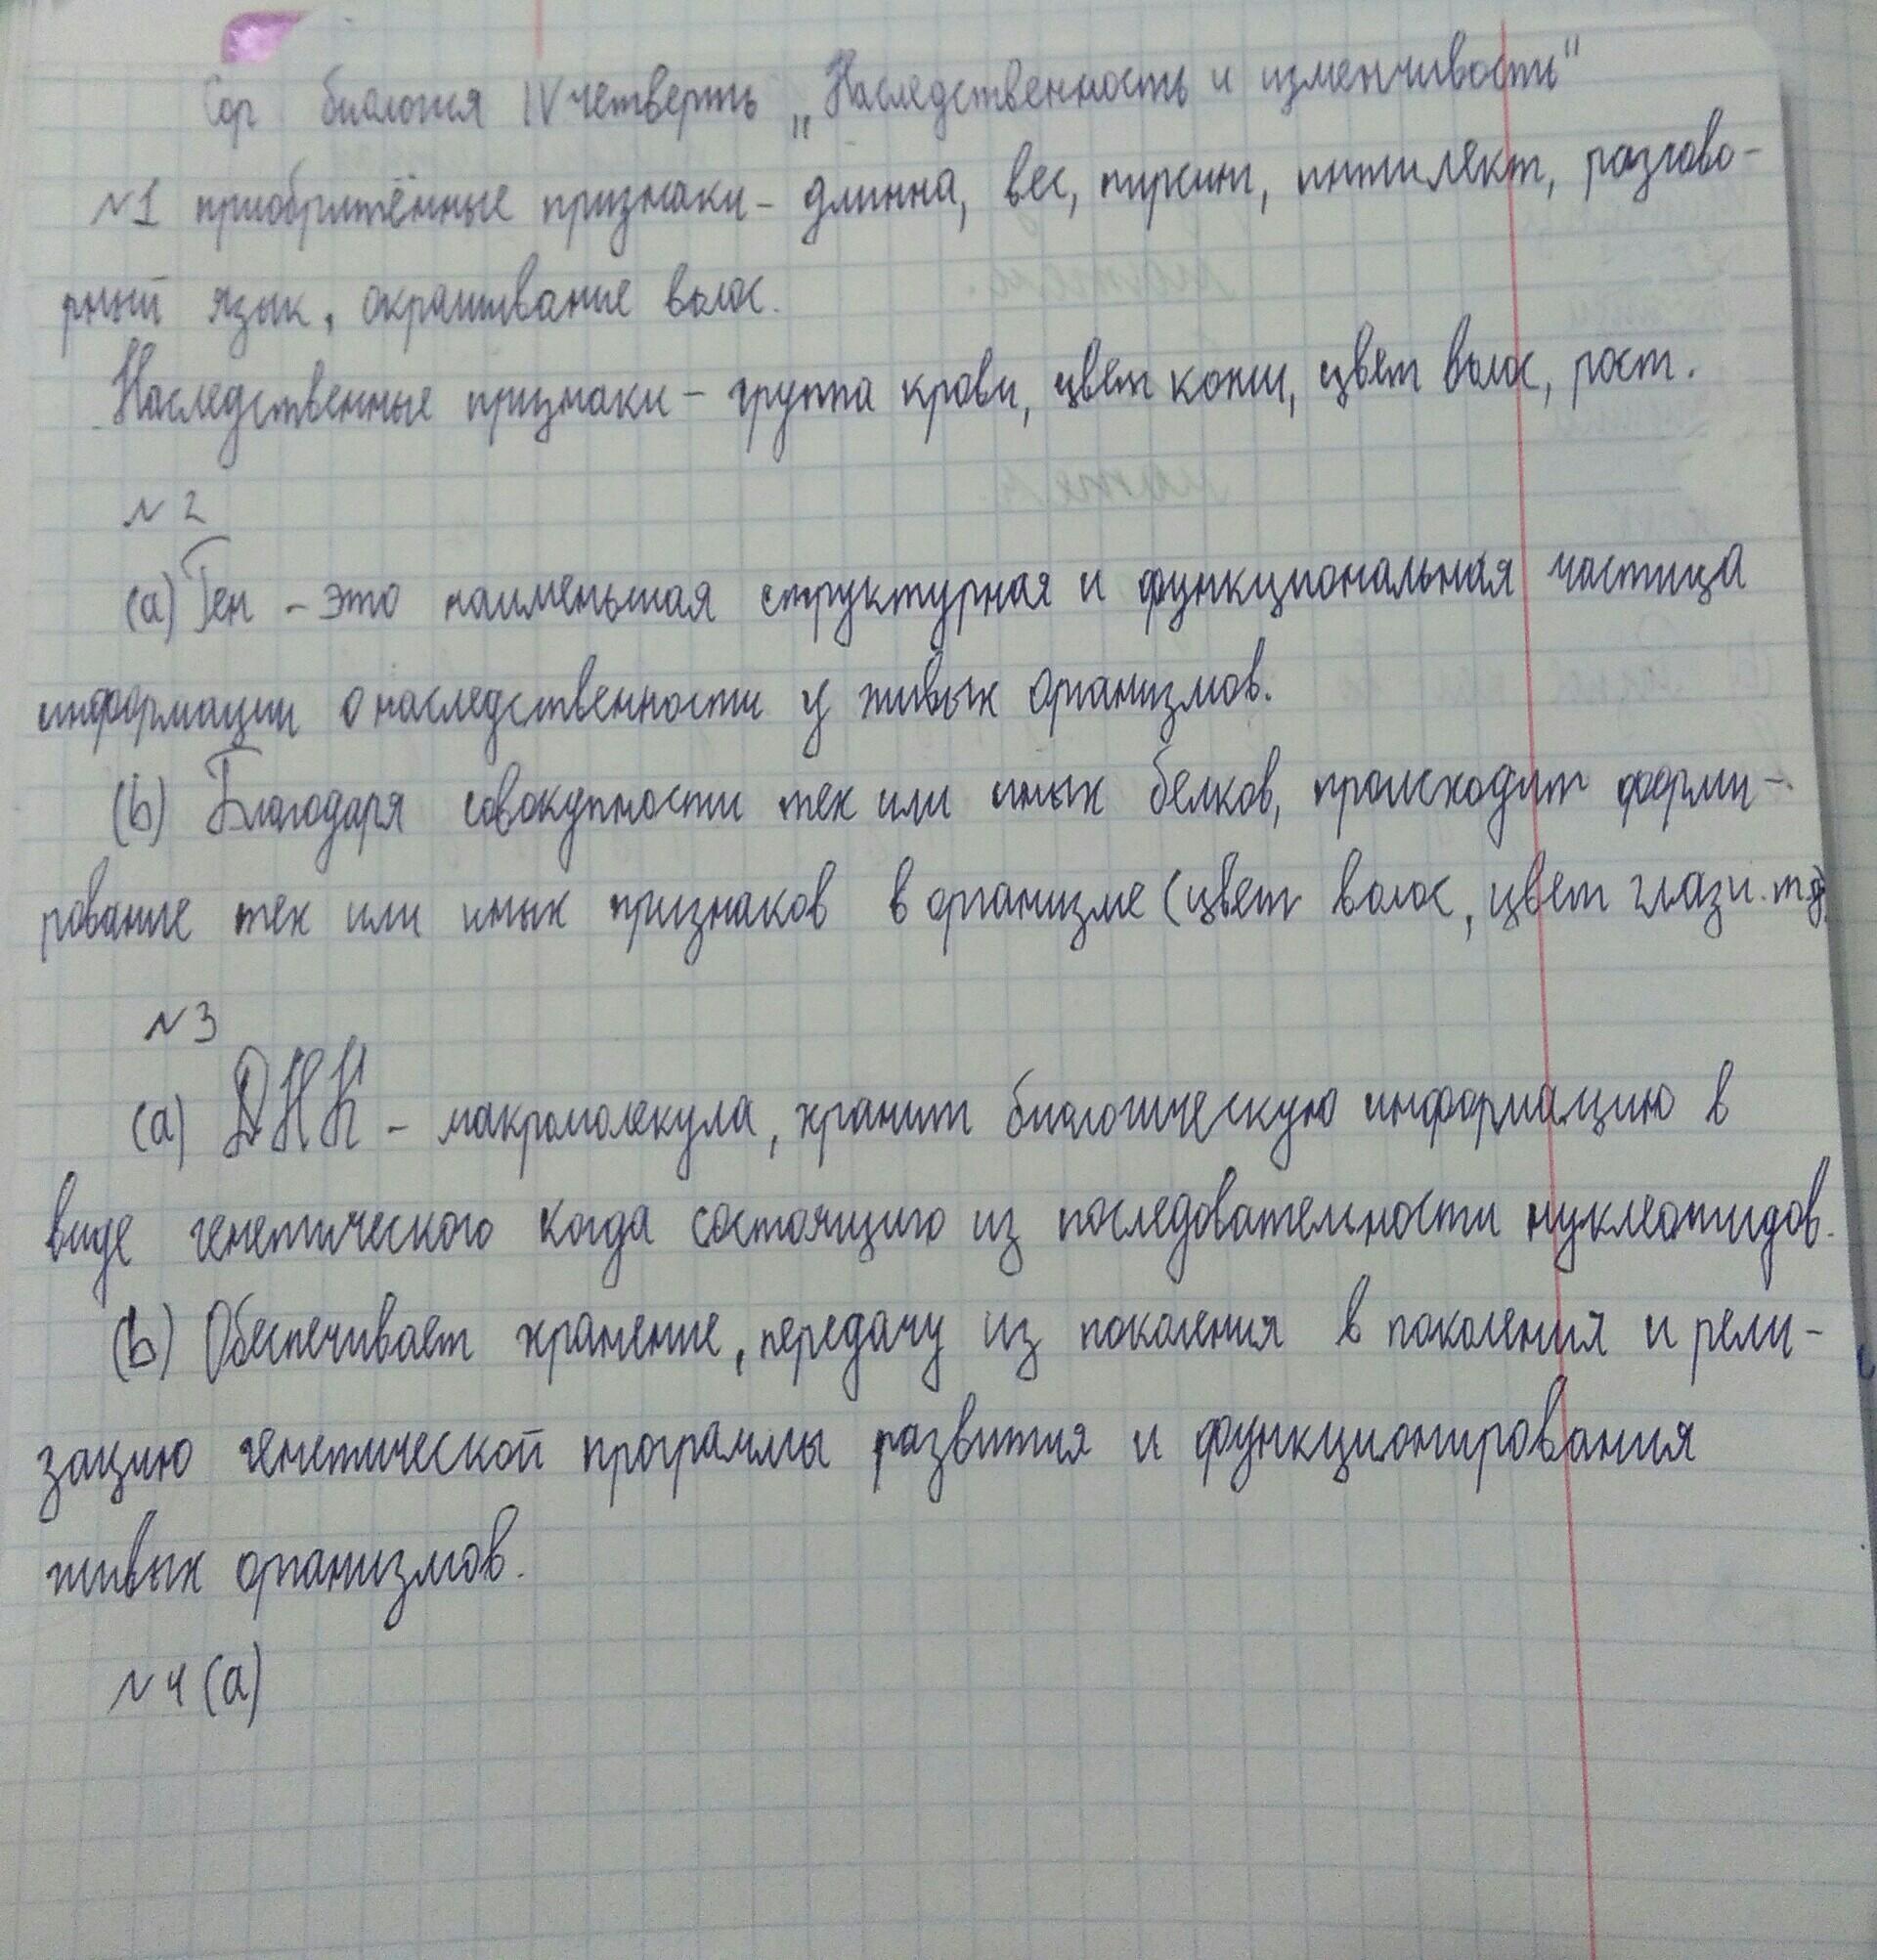 Сор биология IV четверть „Наследственность и изменчивость"
№1 приобритённые признаки - длинна, вес, пирсинг, интилект, разгово-
рный язык, окрашивание волос.
Наследственные признаки - группа крови, цвет кожи, цвет волос, рост.
№2
(a) Ген - это наименьшая структурная и функциональная частица
информации о наследственности у живых организмов.
(b) Благодаря совокупности тех или иных белков, происходит форми-
рование тех или иных признаков в организме (цвет волос, цвет глаз и.тд).
№3
(a) ДНК - макромолекула, хранит биологическую информацию в
виде генетического кода состоящего из последовательности нуклеотидов.
(b) Обеспечивает хранение, передачу из поколения в поколения и рели-
зацию генетической программы развития и функционирования
живых организмов.
№4 (a)